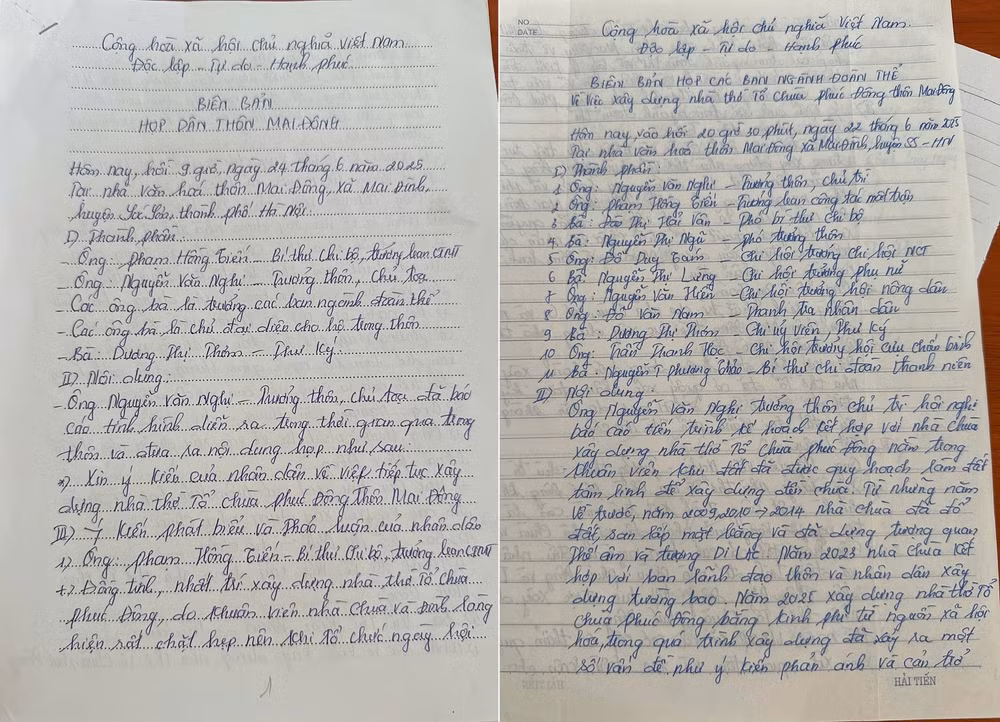 Công hoà xã hội chủ nghĩa Việt Nam
Độc lập - Tự do - Hạnh phúc
BIÊN BẢN
HỌP DÂN THÔN MAI ĐÔNG
Hôm nay, hồi 9 giờ, ngày 24 tháng 6 năm 2025
Tại nhà văn hoá thôn Mai Đông, xã Mai Đình,
huyện Sóc Sơn, thành phố Hà Nội
I) Thành phần
- Ông: Phạm Hồng Tiến - Bí thư chi bộ, trưởng ban CTMT
- Ông: Nguyễn Văn Nghi - Trưởng thôn, Chủ tọa
- Các ông bà là trưởng các ban ngành đoàn thể
- Các ông bà là chủ, đại diện cho hộ trong thôn
- Bà: Dương Thị Thơm - Thư Ký
II) Nội dung:
- Ông Nguyễn Văn Nghi - Trưởng thôn, chủ tọa đã báo
cáo tình hình diễn ra trong thời gian qua trong
thôn và đưa ra nội dung họp như sau
*) Xin ý kiến của nhân dân về việc tiếp tục xây
dựng nhà thờ Tổ chùa Phúc Đông Thôn Mai Đông
III) Ý kiến phát biểu và Thảo luận của nhân dân
1) Ông: Phạm Hồng Tiến - Bí thư chi bộ, trưởng ban CTMT
+) Đồng tình, nhất trí xây dựng nhà thờ Tổ chùa
Phúc Đông, do khuôn viên nhà chùa và Đình làng
hiện rất chật hẹp nên khi tổ chức ngày hội
1
NO
DATE
Công hoà xã hội chủ nghĩa Việt Nam.
Độc lập - Tự do - Hạnh phúc
BIÊN BẢN HỌP CÁC BAN NGÀNH ĐOÀN THỂ
Về việc xây dựng nhà thờ Tổ Chùa Phúc Đông thôn Mai Đông
Hôm nay, vào hồi 20 giờ 30 phút, ngày 22 tháng 6 năm 2025
Tại nhà văn hoá thôn Mai Đông xã Mai Đình, huyện SS - HN
I) Thành phần:
1 Ông: Nguyễn Văn Nghi - Trưởng thôn, chủ trì
2 Ông: Phạm Hồng Tiến - Trưởng ban công tác mặt trận
3 Bà: Đào Thị Hải Vân - Phó bí thư chi bộ
4. Bà: Nguyễn Thị Ngũ - phó trưởng thôn
5 Ông: Đỗ Duy Tám - Chi hội trưởng chi hội NCT
6 Bà: Nguyễn Thị Liêng - Chi hội trưởng phụ nữ
7 Ông: Nguyễn Văn Hiển - Chi hội trưởng hội nông dân
8 Ông: Đỗ Văn Nam - Thanh tra nhân dân
9 Bà: Dương Thị Thơm - Chi ủy viên, Thư Ký
10 Ông: Trần Thanh Hoc - Chi hội trưởng hội cựu chiến binh
11 Bà: Nguyễn T Phương Thảo - Bí thư chi đoàn thanh niên
II) Nội dung
Ông Nguyễn Văn Nghi trưởng thôn chủ trì hội nghị
báo cáo tiến trình kế hoạch kết hợp với nhà chùa
xây dựng nhà thờ Tổ Chùa Phúc Đông nằm trong
khuôn viên khu đất đã được quy hoạch làm đất
tâm linh để xây dựng đền chùa. Từ những năm
về trước, năm 2009, 2010 → 2014 nhà chùa đã đổ
đất, san lấp mặt bằng và đã dựng tượng quan
Thế âm và tượng Di Lặc. Năm 2023 nhà chùa kết
hợp với ban lãnh đạo thôn và nhân dân xây
dựng tường bao. Năm 2025 xây dựng nhà thờ Tổ
chùa Phúc Đông bằng kinh phí từ nguồn xã hội
hoá, trong quá trình xây dựng đã xảy ra một
số vấn đề như ý kiến phản ánh và cản trở
HẢI TIẾN